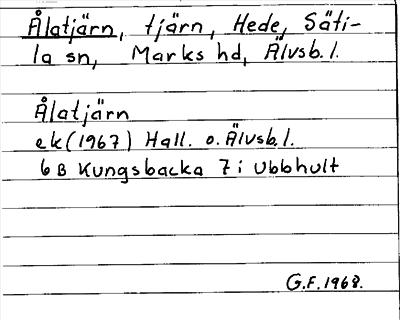 Ålatjärn, tjärn, Hede, Säti-
la sn, Marks hd, Älvsb. l.
Ålatjärn
ek (1967) Hall. o. Älvsb. l.
6B Kungsbacka 7i Ubbhult
G.F. 1968.